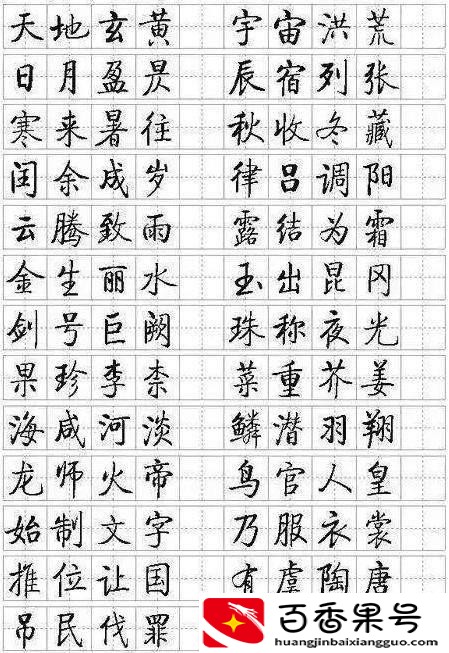 天地玄黄 宇宙洪荒
日月盈昃 辰宿列张
寒来暑往 秋收冬藏
闰余成岁 律吕调阳
云腾致雨 露结为霜
金生丽水 玉出昆冈
剑号巨阙 珠称夜光
果珍李柰 菜重芥姜
海咸河淡 鳞潜羽翔
龙师火帝 鸟官人皇
始制文字 乃服衣裳
推位让国 有虞陶唐
吊民伐罪
百香果号
huangjinbaixiangguo.com